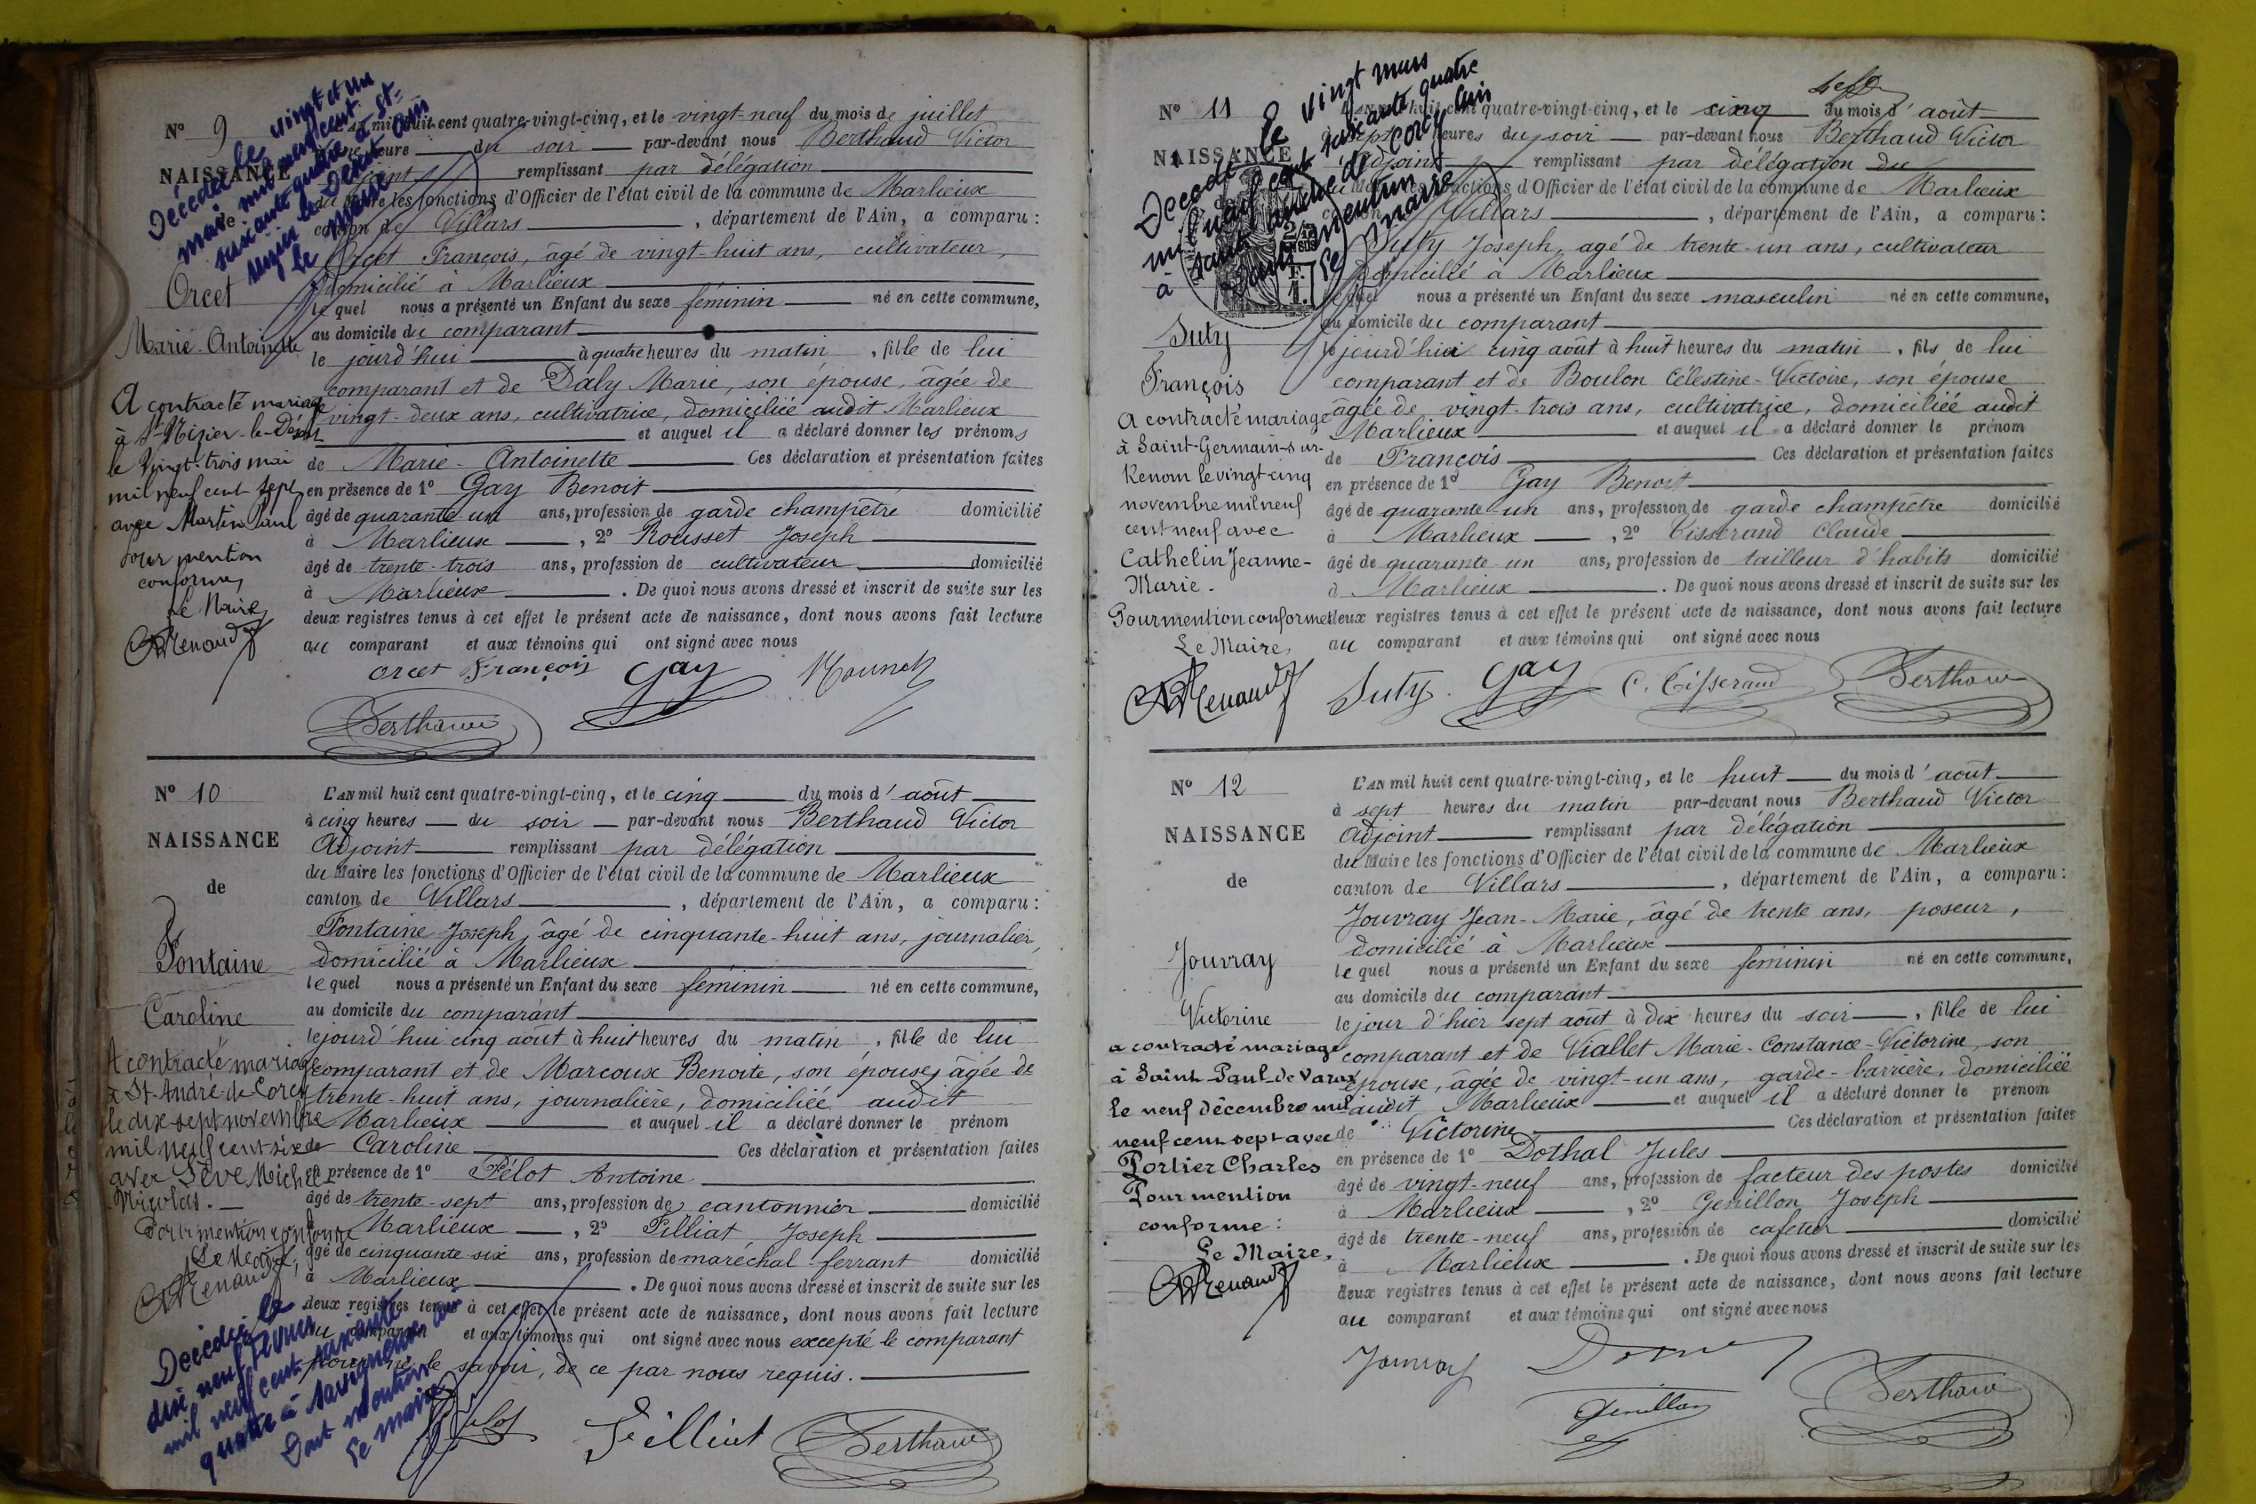 N° 9
NAISSANCE
de
Orcet
Marie-Antoinette
L'AN mil huit cent quatre-vingt-cinq, et le vingt-neuf du mois de juillet
heure du soir par-devant nous Berthaud Victor
remplissant par délégation
du Maire les fonctions d'Officier de l'état civil de la commune de Marlieux
canton de Villars, département de l'Ain, a comparu :
Orcet François, âgé de vingt-huit ans, cultivateur,
domicilié à Marlieux
lequel nous a présenté un Enfant du sexe féminin né en cette commune,
au domicile du comparant
le jourd'hui à quatre heures du matin, fille de lui
comparant et de Daly Marie, son épouse, âgée de
vingt-deux ans, cultivatrice, domiciliée audit Marlieux
et auquel il a déclaré donner les prénoms
de Marie-Antoinette Ces déclaration et présentation faites
en présence de 1° Gay Benoit
âgé de quarante un ans, profession de garde champêtre domicilié
à Marlieux, 2° Rousset Joseph
âgé de trente-trois ans, profession de cultivateur domicilié
à Marlieux. De quoi nous avons dressé et inscrit de suite sur les
deux registres tenus à cet effet le présent acte de naissance, dont nous avons fait lecture
au comparant et aux témoins qui ont signé avec nous
Orcet François Gay
Berthaud
Décédée le vingt et un
mai mil neuf cent
soixante quatre à St-
Nizier le Désert Ain
Le Maire
A contracté mariage
à St Nizier-le-Désert
le Vingt-trois mai
mil neuf cent sept
avec Martin Paul
Pour mention
conforme,
Le Maire,
Renaud
N° 10
NAISSANCE
de
Fontaine
Caroline
L'AN mil huit cent quatre-vingt-cinq, et le cinq du mois d'août
à cinq heures du soir par-devant nous Berthaud Victor
Adjoint remplissant par délégation
du Maire les fonctions d'Officier de l'état civil de la commune de Marlieux
canton de Villars, département de l'Ain, a comparu :
Fontaine Joseph, âgé de cinquante-huit ans, journalier,
domicilié à Marlieux
lequel nous a présenté un Enfant du sexe féminin né en cette commune,
au domicile du comparant
le jourd'hui cinq août à huit heures du matin, fille de lui
comparant et de Marcoux Benoite, son épouse, âgée de
trente-huit ans, journalière, domiciliée audit
Marlieux et auquel il a déclaré donner le prénom
de Caroline Ces déclaration et présentation faites
en présence de 1° Pélot Antoine
âgé de trente-sept ans, profession de cantonnier domicilié
à Marlieux, 2° Pilliat Joseph
âgé de cinquante-six ans, profession de maréchal-ferrant domicilié
à Marlieux. De quoi nous avons dressé et inscrit de suite sur les
deux registres tenus à cet effet le présent acte de naissance, dont nous avons fait lecture
au comparant et aux témoins qui ont signé avec nous excepté le comparant
pour ne le savoir, de ce par nous requis.
Pélot Pilliat Berthaud
A contracté mariage
à St-André-de-Corcy
le dix-sept novembre
mil neuf cent six
avec Sève Michel
Nicolas.
Pour mention conforme
Le Maire,
Renaud
Décédée le
dix neuf
mil neuf cent soixante
quatre à Savigneux Ain
Dont mention
Le Maire
N° 11
NAISSANCE
de
Suty
François
L'AN mil huit cent quatre-vingt-cinq, et le cinq du mois d'août
à sept heures du soir par-devant nous Berthaud Victor
Adjoint remplissant par délégation du
Maire les fonctions d'Officier de l'état civil de la commune de Marlieux
canton de Villars, département de l'Ain, a comparu :
Suty Joseph, âgé de trente-un ans, cultivateur
domicilié à Marlieux
lequel nous a présenté un Enfant du sexe masculin né en cette commune,
au domicile du comparant
le jourd'hui cinq août à huit heures du matin, fils de lui
comparant et de Boulon Célestine-Victoire, son épouse
âgée de vingt-trois ans, cultivatrice, domiciliée audit
Marlieux et auquel il a déclaré donner le prénom
de François Ces déclaration et présentation faites
en présence de 1° Gay Benoit
âgé de quarante-un ans, profession de garde champêtre domicilié
à Marlieux, 2° Tisserand Claude
âgé de quarante-un ans, profession de tailleur d'habits domicilié
à Marlieux. De quoi nous avons dressé et inscrit de suite sur les
deux registres tenus à cet effet le présent acte de naissance, dont nous avons fait lecture
au comparant et aux témoins qui ont signé avec nous
Suty Gay C. Tisserand Berthaud
Décédé le vingt mars
mil neuf cent soixante quatre
à Saint André de Corcy Ain
Dont mention
Le Maire
A contracté mariage
à Saint-Germain-sur-
Renom le vingt-cinq
novembre mil neuf
cent neuf avec
Cathelin Jeanne-
Marie.
Pour mention conforme
Le Maire,
Renaud
N° 12
NAISSANCE
de
Jouvray
Victorine
L'AN mil huit cent quatre-vingt-cinq, et le huit du mois d'août
à sept heures du matin par-devant nous Berthaud Victor
Adjoint remplissant par délégation
du Maire les fonctions d'Officier de l'état civil de la commune de Marlieux
canton de Villars, département de l'Ain, a comparu :
Jouvray Jean-Marie, âgé de trente ans, poseur,
domicilié à Marlieux
lequel nous a présenté un Enfant du sexe féminin né en cette commune,
au domicile du comparant
le jour d'hier sept août à dix heures du soir, fille de lui
comparant et de Viallet Marie-Constance-Victorine, son
épouse, âgée de vingt-un ans, garde-barrière, domiciliée
audit Marlieux et auquel il a déclaré donner le prénom
de Victorine Ces déclaration et présentation faites
en présence de 1° Dothal Jules
âgé de vingt-neuf ans, profession de facteur des postes domicilié
à Marlieux, 2° Genillon Joseph
âgé de trente-neuf ans, profession de cafetier domicilié
à Marlieux. De quoi nous avons dressé et inscrit de suite sur les
deux registres tenus à cet effet le présent acte de naissance, dont nous avons fait lecture
au comparant et aux témoins qui ont signé avec nous
Jouvray
Genillon Berthaud
a contracté mariage
à Saint-Paul-de-Varax
le neuf décembre mil
neuf cent sept avec
Portier Charles
Pour mention
conforme :
Le Maire,
Renaud